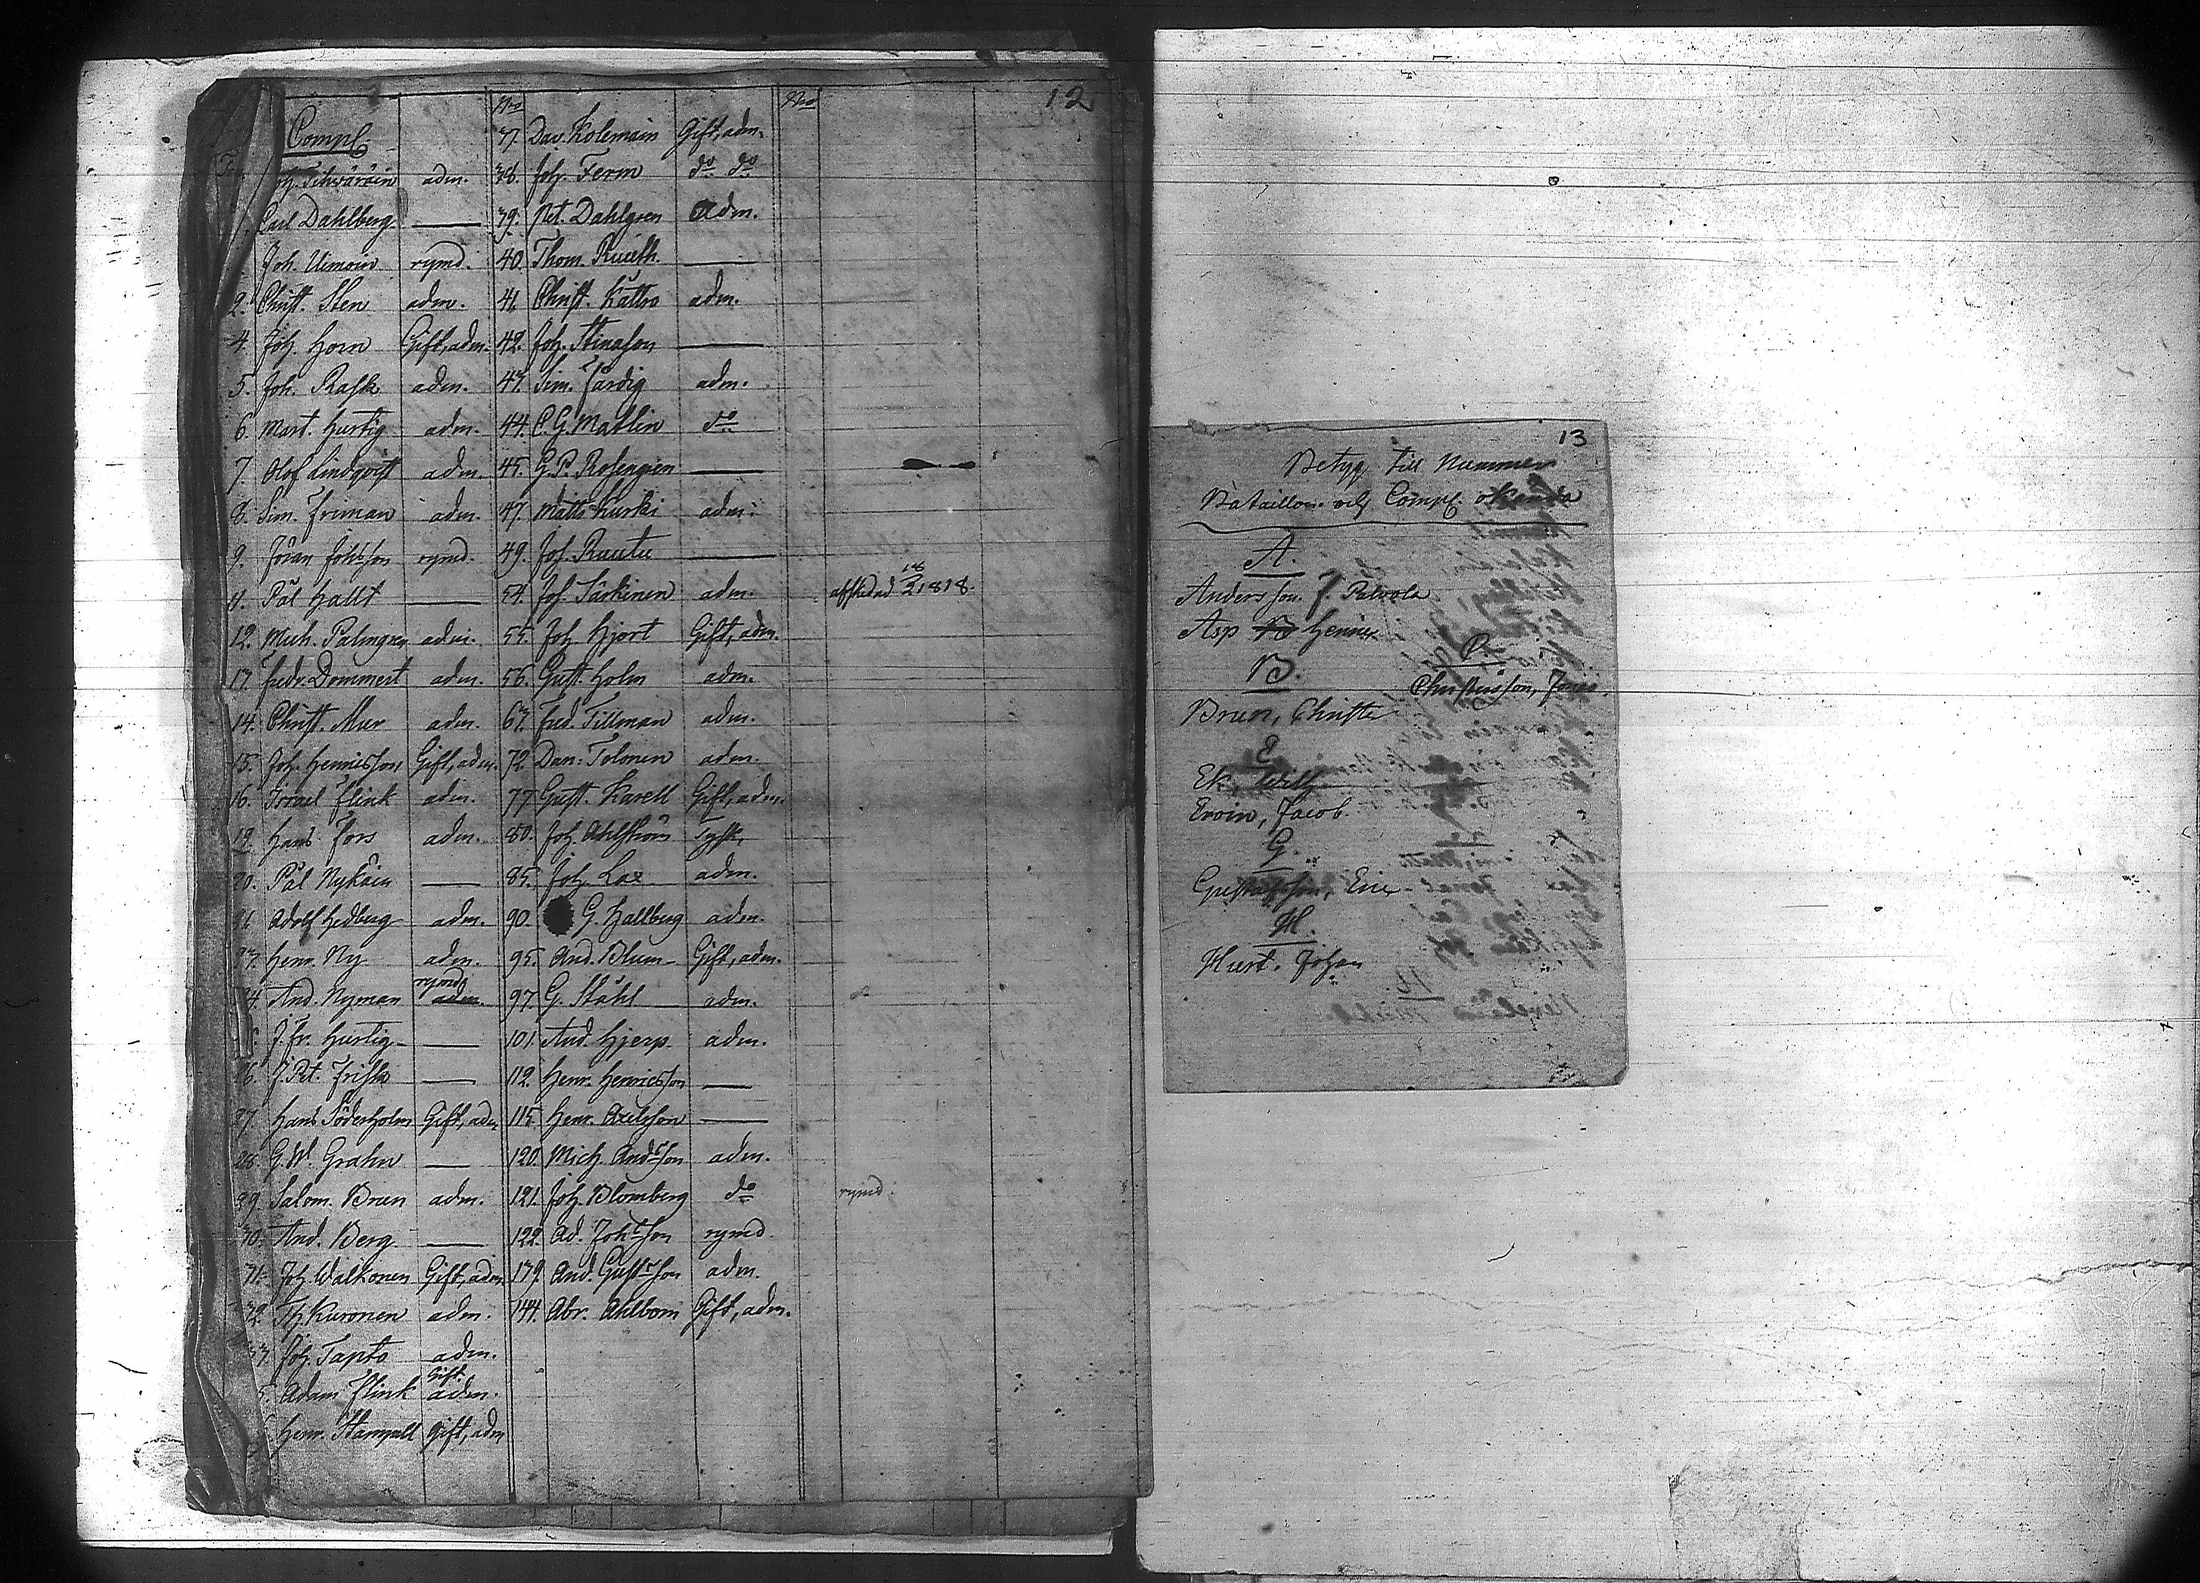 12
Compl.
Joh. Tihväräin adm.
Carl Dahlberg —
Joh. Uimoin rymd.
2. Christ. Sten adm.
4. Joh. Horn Gift, adm.
5. Joh. Rask adm.
6. Mart. Hurtig adm.
7. Olof Lindqvist adm.
8. Sim. Friman adm.
9. Jöran Johsson rymd.
11. Pål Hallt —
12. Mich. Palmgren adm.
13. Fredr. Dommert adm.
14. Christ. Mur adm.
15. Joh. Henricsson Gift, adm.
16. Israel Flink adm.
19. Hans Fors adm.
20. Pål Nykäin —
21. Adolf Hedberg adm.
23. Henr. Ny adm.
rymd
24. And. Nyman adm.
J. Fr. Hurtig —
26. J. Pet. Frisk —
27. Hans Söderholm Gift, adm.
28. G. W. Grahn —
29. Salom. Brun adm.
30. And. Berg —
31. Joh. Walkonen Gift, adm.
32. Th. Kuronen adm.
33. Joh. Tapto adm.
Gift.
5. Adam Flink adm.
6. Henr. Stampell Gift, adm.
No
37. Dav. Kolemain Gift, adm.
38. Joh. Ferm do do
39. Pet. Dahlgren adm.
40. Thom. Ruuth —
41. Christ. Kättrö adm.
42. Joh. Stinason —
43. Sim. Färdig adm.
44. C. G. Mathlin do
45. G. P. Rosengren —
47. Matts Kurki adm.
49. Joh. Ruutu —
54. Joh. Särkinen adm. afskedad 18/3 1818.
55. Joh. Hjort Gift, adm.
56. Gust. Holm adm.
63. Fred. Tillman adm.
72. Dan. Tolonen adm.
77. Gust. Karell Gift, adm.
80. Joh. Ahlström Tysk,
85. Joh. Lax adm.
90. G. Hallberg adm.
95. And. Blum Gift, adm.
97. G. Ståhl adm.
101. And. Hjerp adm.
112. Henr. Henricsson —
115. Henr. Axelsson —
120. Mich. Andsson adm.
121. Joh. Blomberg do rymd.
122. Ad. Johsson rymd.
139. And. Gustsson adm.
144. Abr. Ahlbom Gift, adm.
No
13
Betyg till Nummer
Bataillon och Compl. okända
A.
Andersson. J. Palvola
Asp Henric
B.
Brun, Christer
C.
Christersson, Jonas
E
Ek, Wilh.
Eroin, Jacob.
G.
Gustafsson, Eric
H.
Hurt. Johan